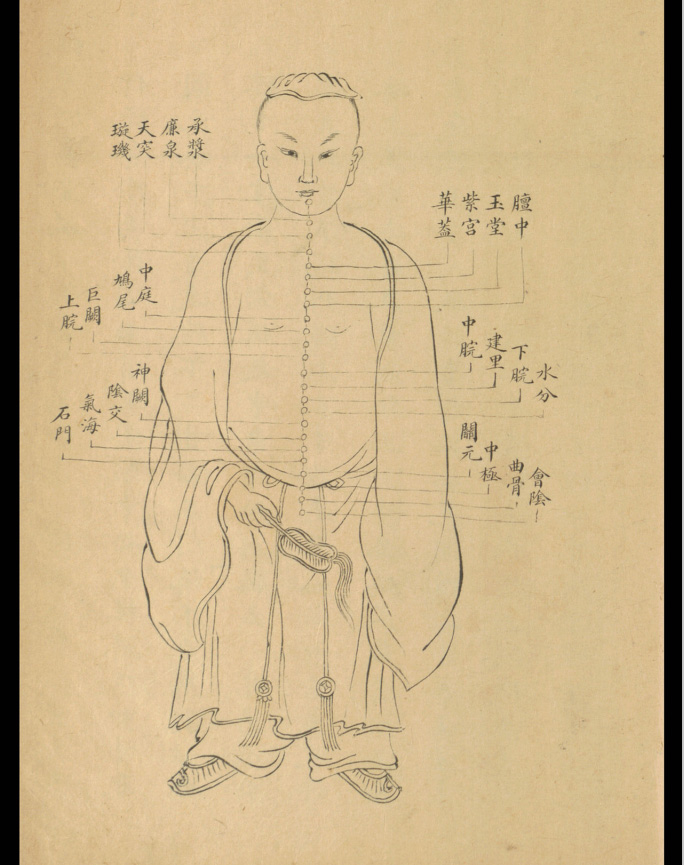 承漿
廉泉
天突
璇璣
膻中
玉堂
紫宮
華蓋
中庭
鳩尾
巨闕
上脘
中脘
建里
下脘
水分
神闕
陰交
氣海
石門
關元
中極
曲骨
會陰